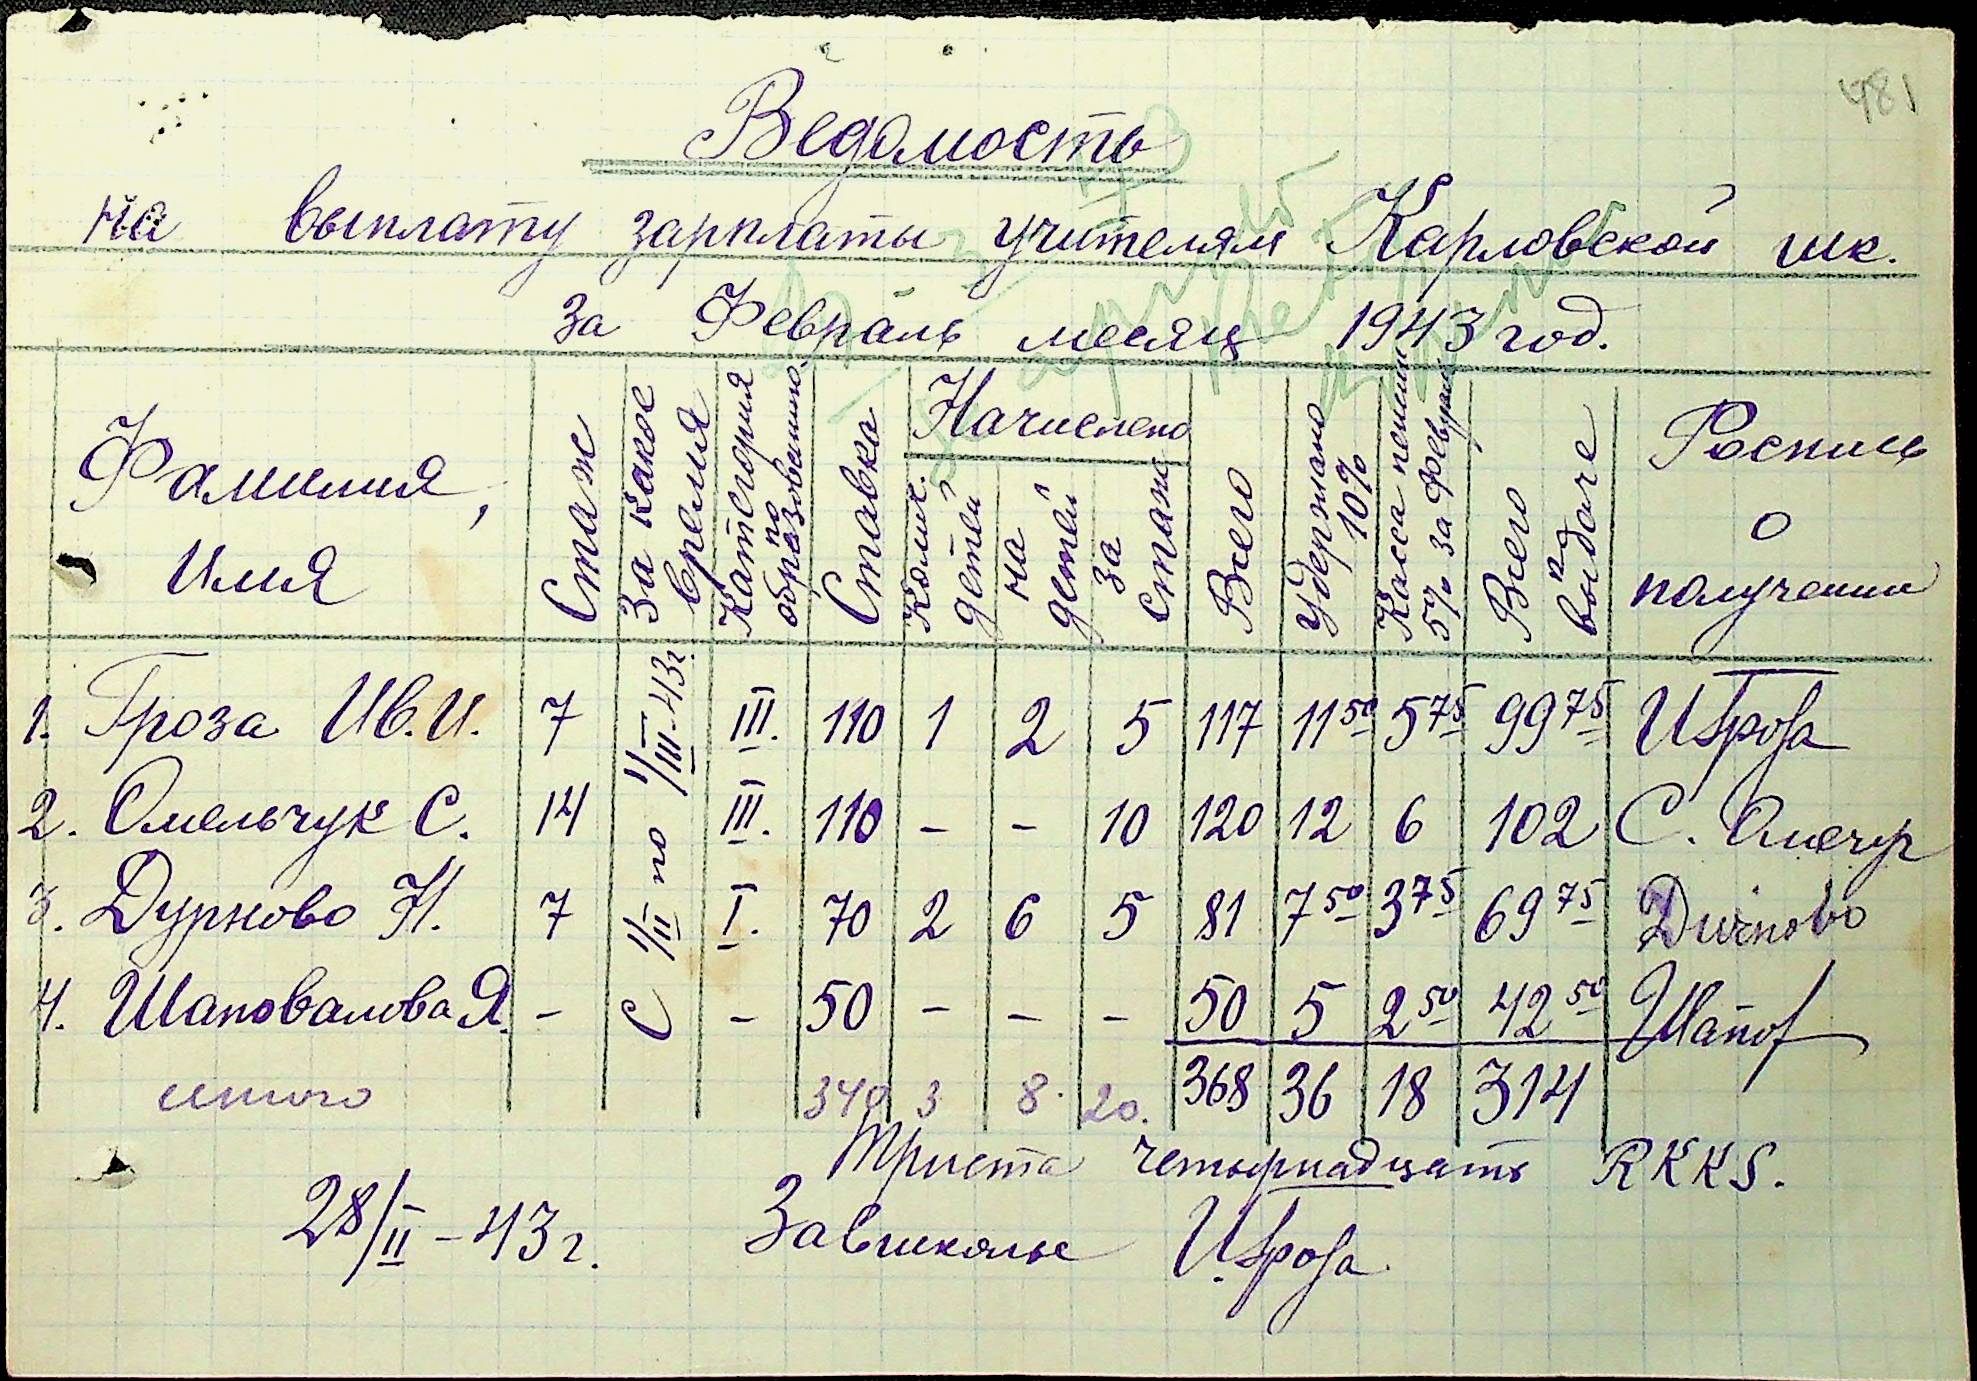 481
Ведомость
на выплату зарплаты учителям Карловской шк.
за Февраль месяц 1943 год.
Фамилия, Имя | Стаж | За какое время | Категория по образованию | Ставка | Начислено | Всего | Удержано 10% | Касса пенсии 5% за февраль | Всего к выдаче | Роспись о получении
Колич. детей | на детей | за стаж
с 1/II по 1/III-43г.
1. Гроза Ив. И. 7 III. 110 1 2 5 117 11 50 5 75 99 75 ИГроза
2. Омельчук С. 14 III. 110 - - 10 120 12 6 102 С. Омечур
3. Дурново Н. 7 I. 70 2 6 5 81 7 50 3 75 69 75 Дурново
4. Шаповалова Я. - - 50 - - - 50 5 2 50 42 50 Шапов
итого 340 3 8. 20. 368 36 18 314
Триста четырнадцать RKKS.
28/II-43г. Завшколы ИГроза